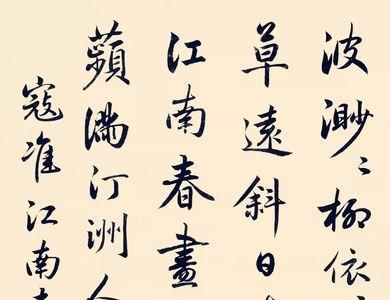 波渺〻柳依〻
草遠斜日
江南春盡
蘋滿汀洲人
寇准江南